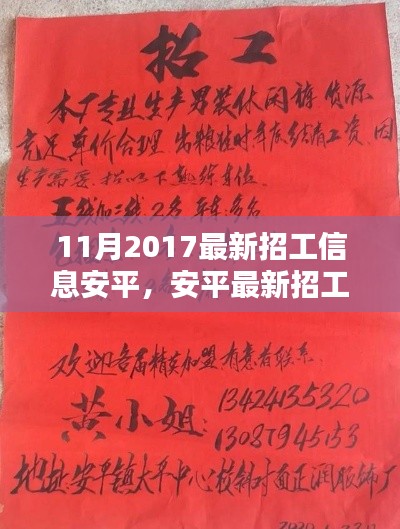 招工
本厂专业生产男装休闲裤 货源
充足 单价合理 出粮准时年底结清工资 因
生产需要 招以下熟练车位
2名
11月2017最新招工信
息安平，安平最新招工
欢迎各届精英加盟 有意者联系
黄小姐: 13424135320
13087945153
地址:安平镇大平中心校斜对面正润服饰厂